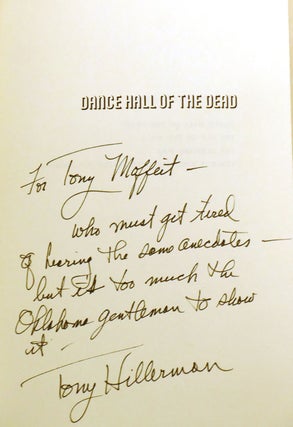 DANCE HALL OF THE DEAD
For Tony Moffeit —
who must get tired
of hearing the same anecdotes —
but is too much the
Oklahoma gentleman to show
it —
Tony Hillerman